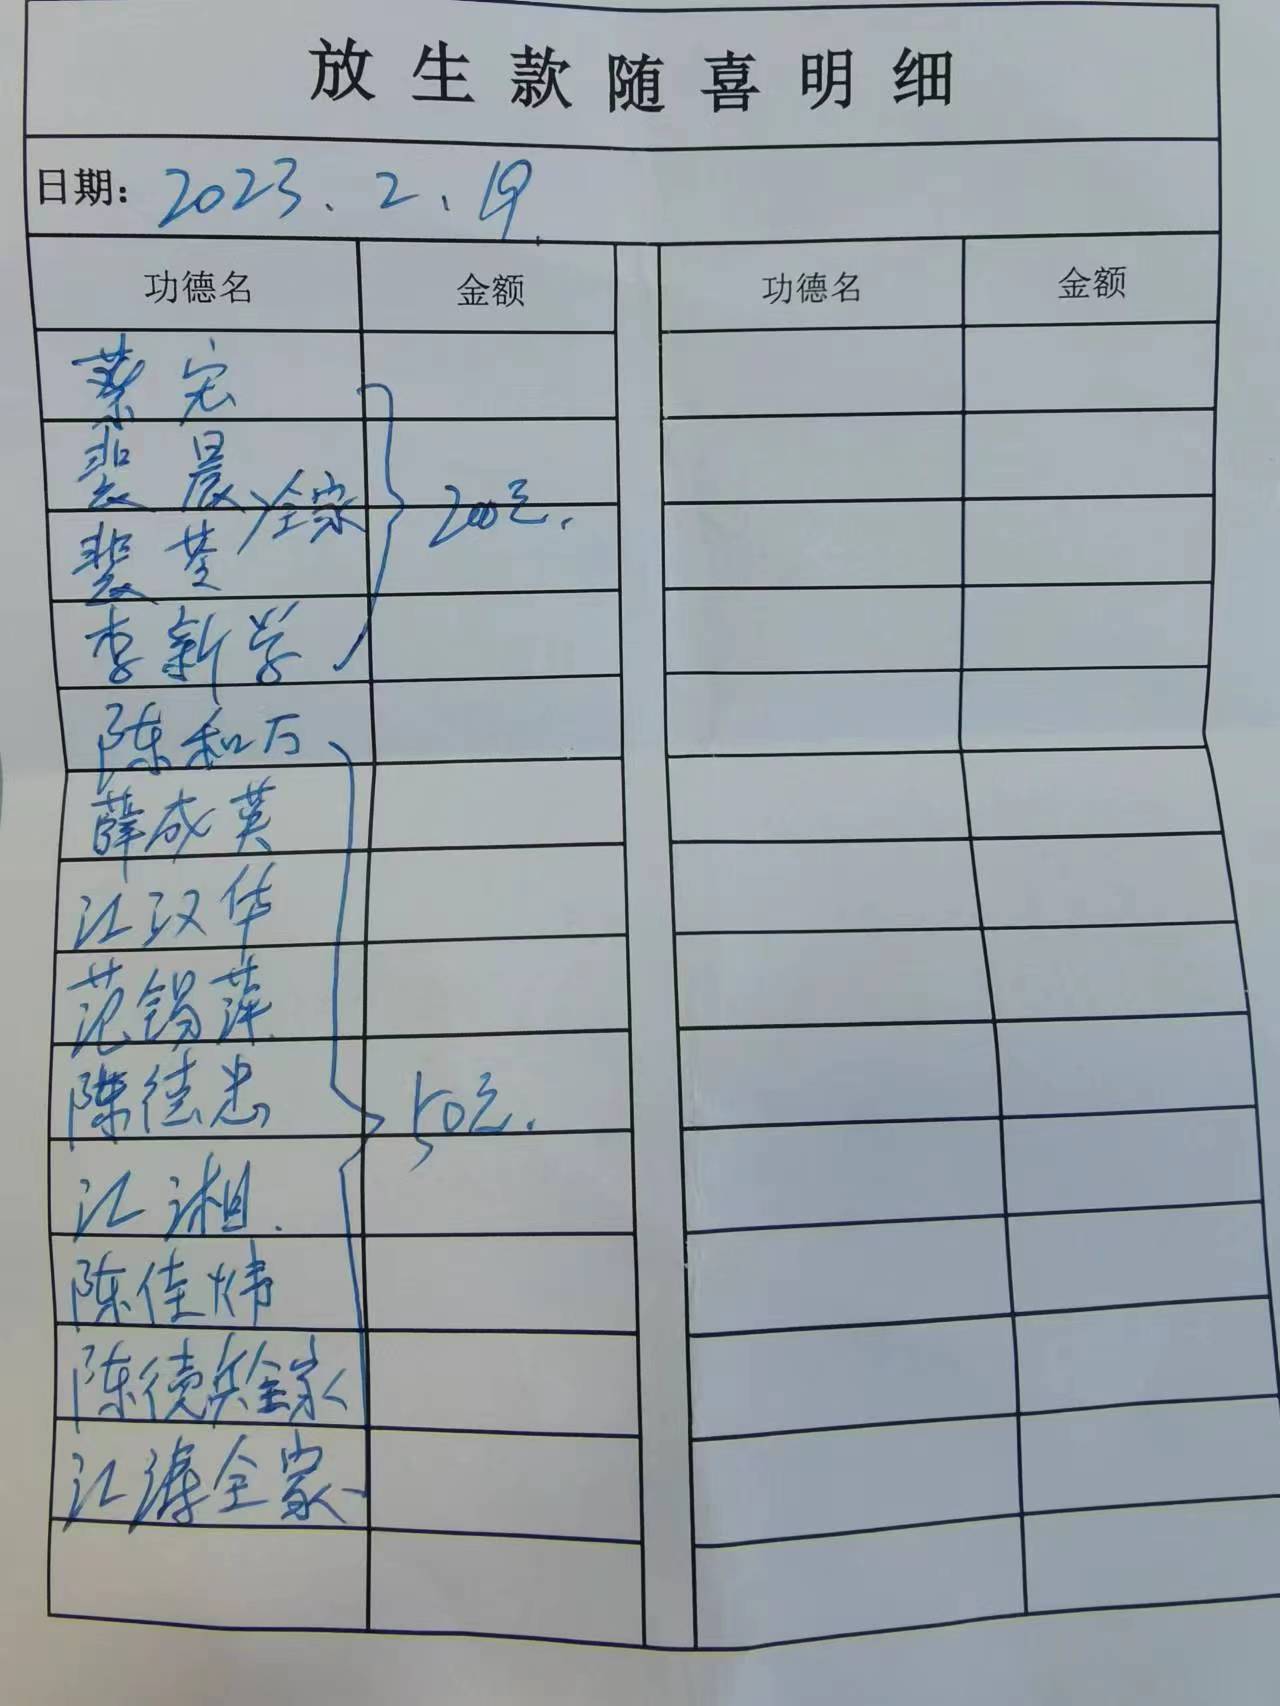 放生款随喜明细
日期: 2023.2.19
功德名 金额 功德名 金额
蔡宏
裴晨
全家 200元.
裴苓
李新学
陈和万
薛成英
江汉华
范锡萍
陈德忠 50元.
江湘.
陈佳炜
陈德兵全家
江涛全家